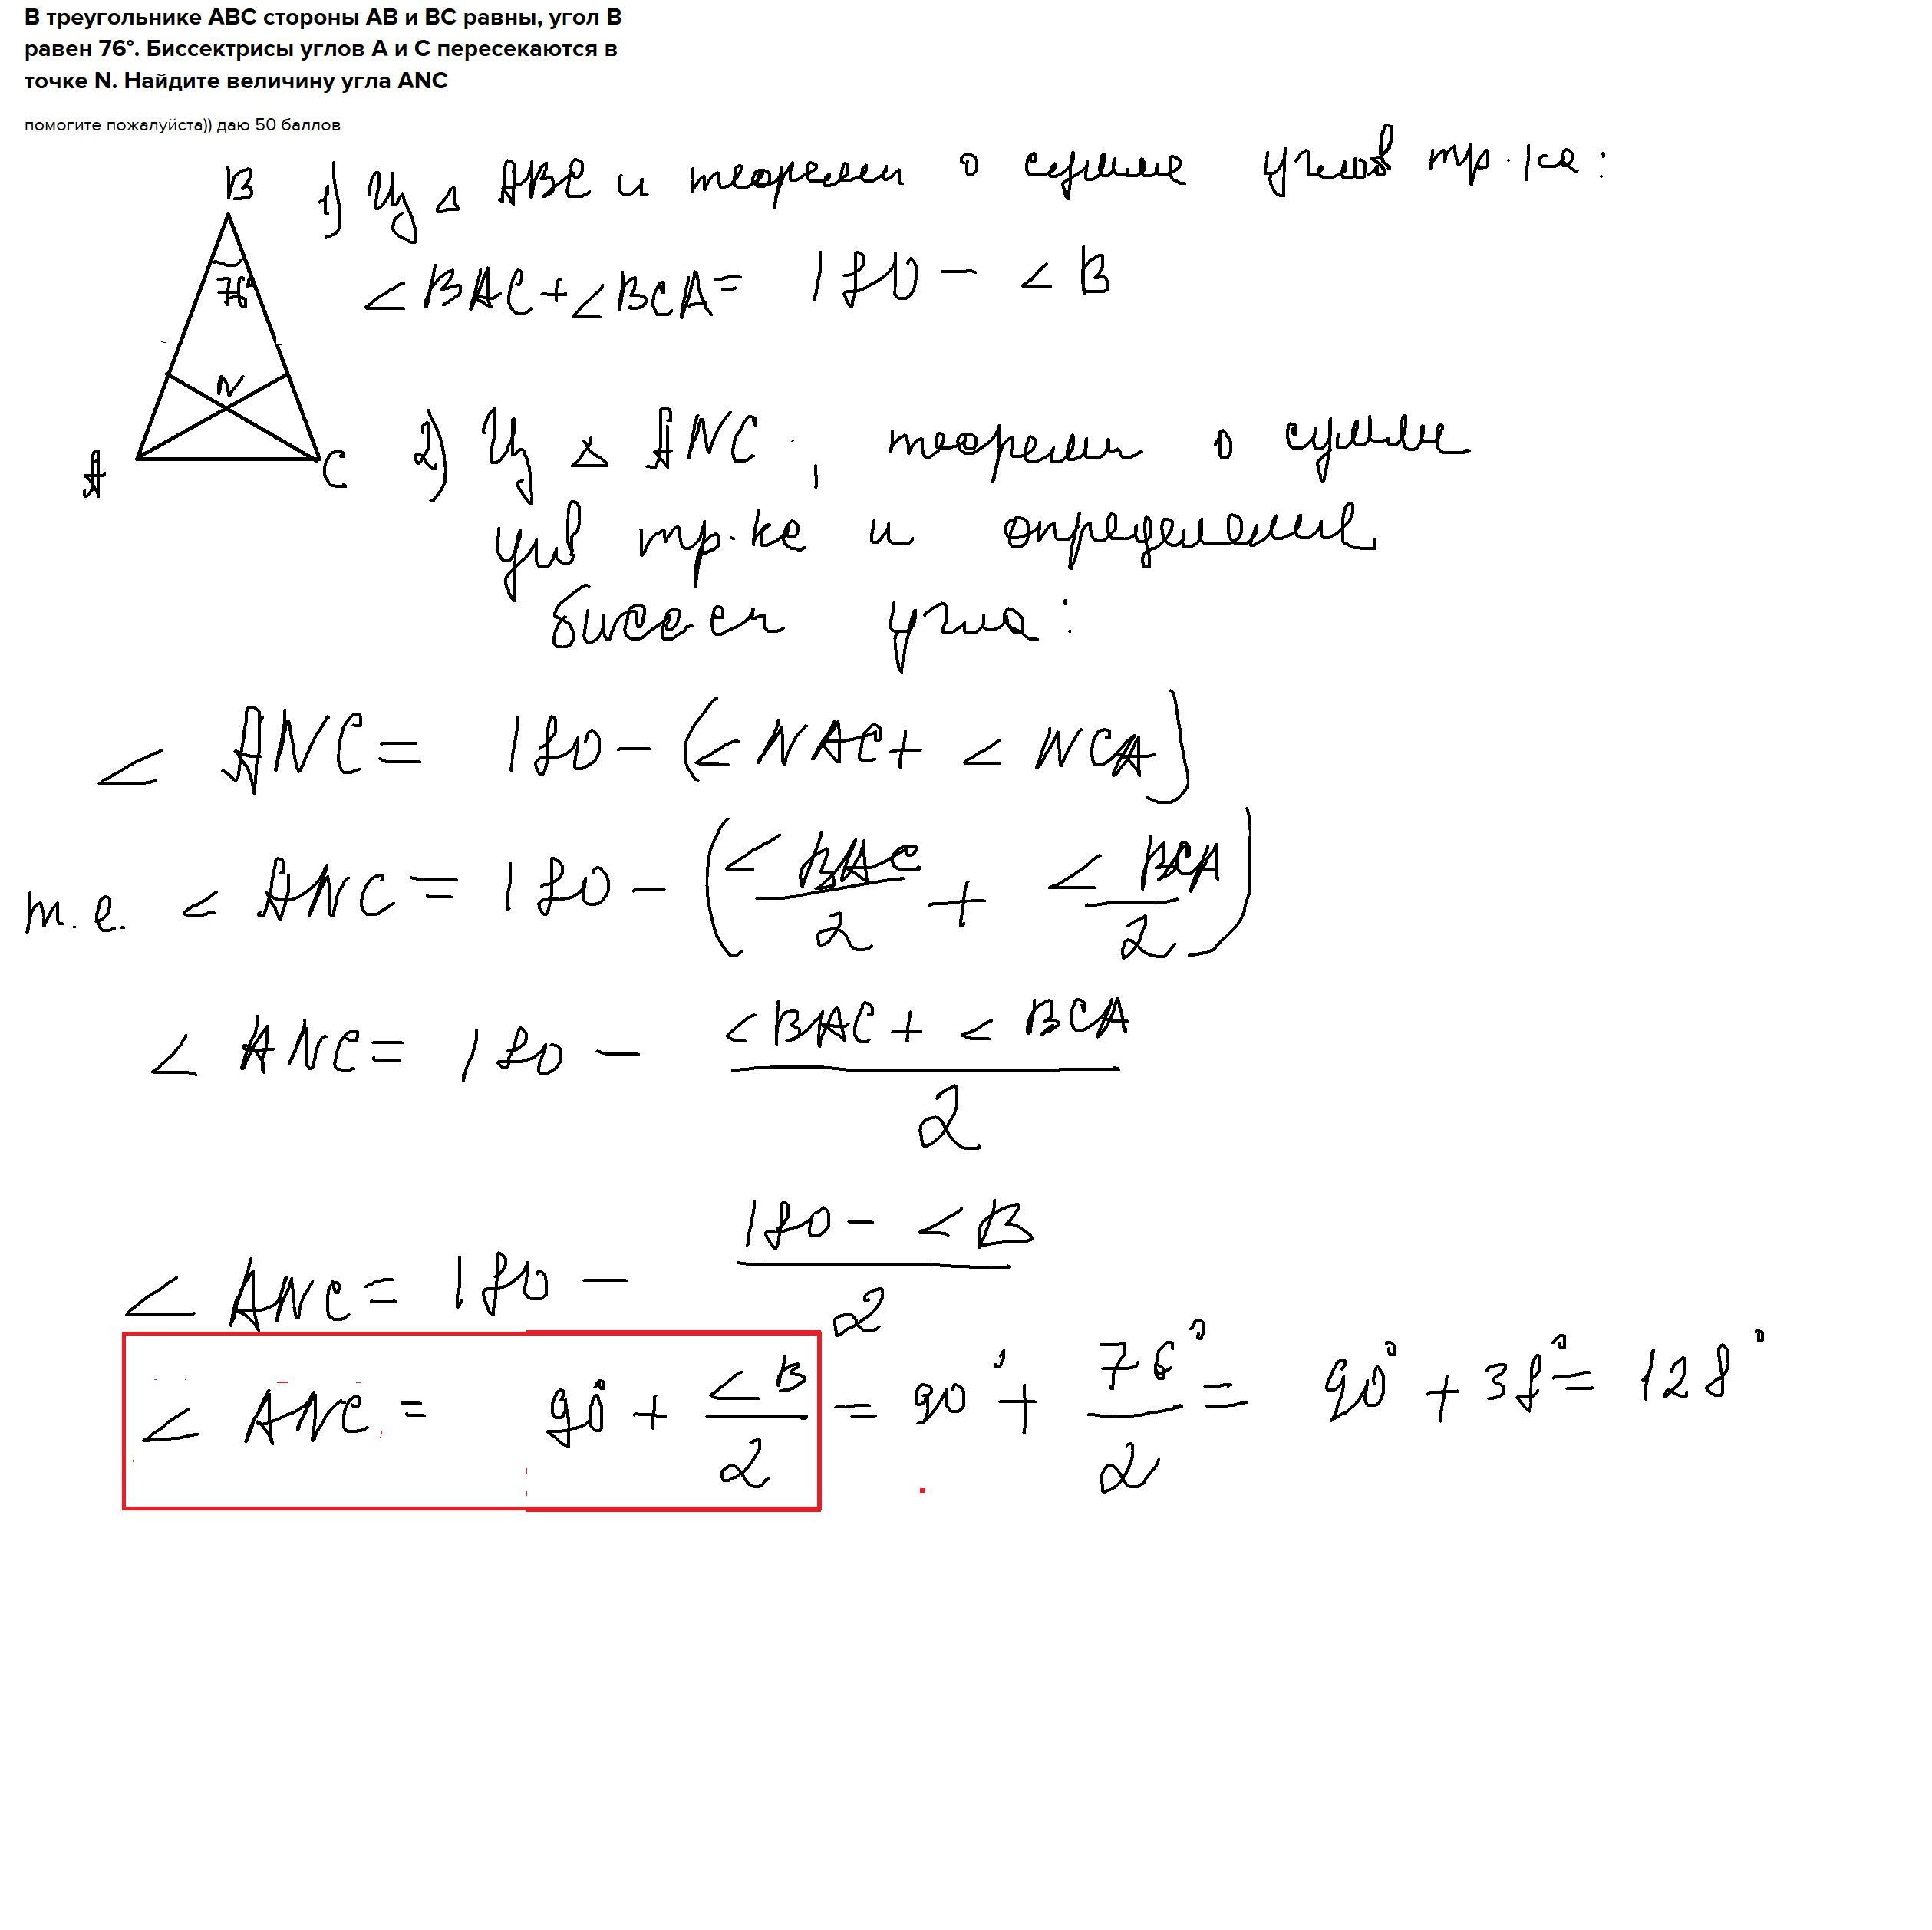 В треугольнике ABC стороны AB и BC равны, угол B
равен 76°. Биссектрисы углов A и C пересекаются в
точке N. Найдите величину угла ANC
помогите пожалуйста)) даю 50 баллов
B
76°
N
A
C
1) Из △ ABC и теоремы о сумме углов тр-ка:
∠BAC+∠BCA= 180 - ∠B
2) Из △ ANC, теоремы о сумме
угов тр-ка и определения
биссек угла:
∠ANC= 180-(∠NAC+ ∠NCA)
т.е. ∠ANC= 180 - (∠BAC/2 + ∠BCA/2)
∠ANC= 180 - (∠BAC+ ∠BCA)/2
∠ANC= 180 - (180- ∠B)/2
∠ANC= 90° + ∠B/2 = 90° + 76°/2 = 90° + 38° = 128°